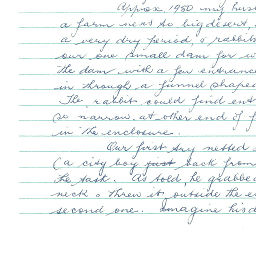 Approx. 1980 my hus
a farm next to big desert,
a very dry period, & rabbits
our one small dam for w
the dam, with a few entranc
in through a funnel shape
The rabbits could find ent
so narrow, at other end of f
in the enclosure.
Our first try netted
(a city boy just back from
the task. As told, he grabbe
neck & threw it outside the e
second one. Imagine his d